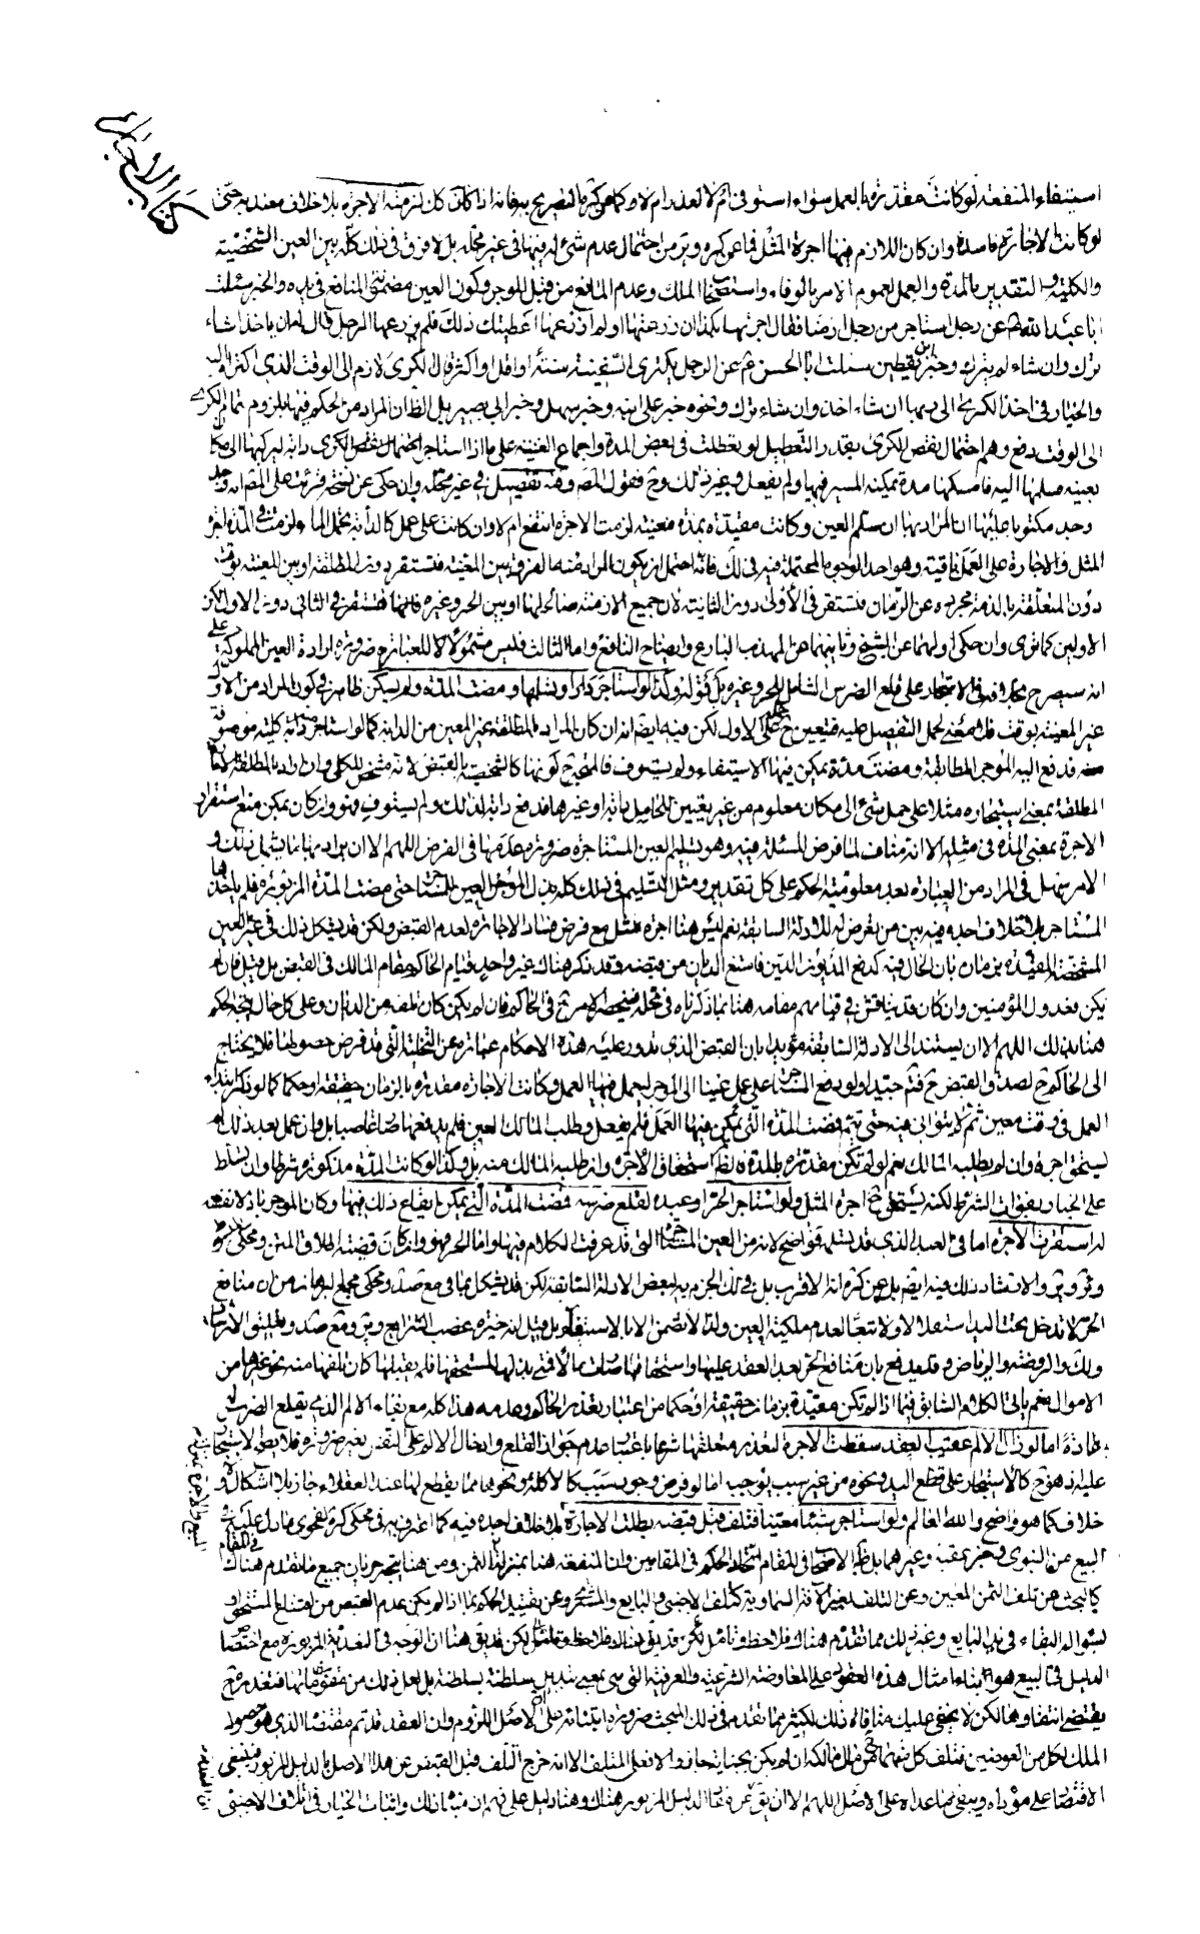 كتاب الأجارة
استيفاء المنفعة لو كانت مقدرة بالعمل سواء استوفى ام لا لعذر ام لا كما عن كثير التصريح به فانه اذا كان كل لزمته الاجرة بلا خلاف معتد به حتى
لو كانت الاجارة فاسدة وان كان اللازم فيها اجرة المثل فما عن كره وير من احتمال عدم شئ له فيها في غير محله بل لا فرق في ذلك كله بين العين الشخصية
والكلية و التقدير بالمدة والعمل لعموم الامر بالوفاء واستصحاب الملك وعدم المانع من قبل الموجر وكون العين مضمنة المنافع في يده والخبر سئلت
ابا عبد الله عن رجل استاجر من رجل ارضا فقال اجرتها بكذا ان زرعتها او لم ازرعها اعطيتك ذلك فلم يزرعها الرجل قال له ان ياخذ ان شاء
ترك وان شاء لم يترك وخبر ابن يقطين سئلت ابا الحسن عن الرجل يكترى السفينة سنة او اقل او اكثر قال الكرى لازم الى الوقت الذي اكتراه اليه
والخيار في اخذ الكرى الى ربها ان شاء اخذ وان شاء ترك ونحوه خبر على ابنه وخبر سهل وخبر ابى بصير بل الظان المراد من الحكم فيها بلزوم تمام الكرى
الى الوقت دفع وهم احتمال نقص الكرى بقدر التعطيل لو تعطلت في بعض المدة واجماع الغنية على ما اذا استاجر دابة ليركبها الى مكان
بعينه فسلمها اليه فامسكها مدة يمكنه المسير فيها ولم يفعل وغير ذلك وح فقول المصنف وفيه تفصيل في غير محله وان حكى عن نسخة قرئت على المصنف انه
وجد مكتوبا عليها ان المراد بها ان سلم العين وكانت مقيدة بمدة معينة لزمت الاجرة انتفع ام لا وان كانت على عمل كالدابة تحمل المتاع
المثل والاجارة على العمل باقية وهو احد الوجوه المحتملة فيه في ذلك فانه احتمل ان يكون المراد منه الفرق بين المعينة فتستقر دون المطلقة او بين المعينة بوقت
دون المتعلقة بالذمة مجردة عن الزمان فتستقر في الأولى دون الثانية لان جميع الازمنة صالحة لها او بين الحر وغيره فانها تستقر في الثاني دون الاول
الاولين كما ترى وان حكى اولهما عن الشيخ وثانيهما عن المهذب البارع وايضاح النافع واما الثالث فليس مشمولا للعبارة ضرورة ارادة العين المملوكة على
انه سيصرح بخلافه في الاستيجار على قلع الضرس الشامل للحر وغيره بل قوله وكذا لو استاجر دارا وتسلمها ومضت المدة ولم يسكن ظاهر في كون المراد من الاول
غير المعينة بوقت فلا معنى لحمل التفصيل عليه فتعين ح حمله على الاول لكن فيه ايضا انه ان كان المراد بالمطلقة غير المعين من الدابة كما لو استاجر دابة كلية موصوفة
فدفع اليه الموجر المطابقة ومضت مدة يمكن فيها الاستيفاء ولم يستوف فالمتجه ح كونها كالشخصية بالقبض لانه مشخص للكلى وان اراد بالمطلقة
المطلقة بمعنى استيجاره مثلا على حمل شئ الى مكان معلوم من غير تعيين للحامل بدابة او غيرها فدفع دابة لذلك ولم يستوف فهو وان كان يمكن منع استقرار
الاجرة بمضى المدة في مثله الا انه مناف لما فرض المسئلة فيه وهو تسليم العين المستاجرة ضرورة عدمها في الفرض اللهم الا ان يراد بها ما يشمل ذلك و
الامر سهل في المراد من العبارة بعد معلومية الحكم على كل تقدير ومثل التسليم في ذلك كله بذل الموجر العين للمستاجر حتى مضت المدة المزبورة فلم ياخذها
المستاجر بلا خلاف اجده فيه بين من تعرض له للادلة السابقة نعم ليس هنا اجرة مثل مع فرض فساد الاجارة لعدم القبض ولكن قد يشكل ذلك في غير العين
المشخصة المقيدة بزمان بان الحال فيه كدفع المديون الدين فامتنع الديان من قبضه وقد ذكر هناك غير واحد قيام الحاكم مقام المالك في القبض بل قيل فان لم
يكن فعدول المؤمنين وان كان قد يناقش في قيامهم مقامه هنا بما ذكرناه في محله فينحصر الامر ح في الحاكم فان لم يكن كان تلفه من الديان وعلى كل حال يتجه الحكم
هنا بذلك اللهم الا ان يستند الى الادلة السابقة مؤيدا بان القبض الذي تدور عليه هذه الاحكام عبارة عن التخلية التي قد فرض حصولها فلا يحتاج
الى الحاكم ح لصدق القبض ح فتم جيدا ولو دفع المستاجر على عمل عينا الى الموجر ليعمل فيها العمل وكانت الاجارة مقدرة بالزمان حقيقة او حكما كما لو ذكر ابتداء
العمل في وقت معين ثم لا يتوانى فيه حتى يتم فمضت المدة التي يمكن فيها العمل فلم يفعل وطلب المالك العين فلم يدفعها صار غاصبا بل وان عمل بعد ذلك لم
يستحق اجرة وان لم يطلبه المالك نعم لو لم تكن مقدرة بالمدة استحقاق الاجرة وان طلبه المالك منه بل وكذا لو كانت المدة مذكورة شرطا وان تسلط
على الخيار بفوات الشرط لكنه يستحق ح اجرة المثل ولو استاجر الحر او عبده لقلع ضرسه فمضت المدة التي يمكن ايقاع ذلك فيها وكان الموجر باذلا نفسه
له استقرت الاجرة اما في العبد الذي قد تسلمه فواضح لانه من العين المستاجرة التي قد عرفت الكلام فيها واما الحر فهو وان كان قضية اطلاق المتن ومحكى ط
وير والارشاد ذلك فيه ايضا بل عن كره انه الاقرب بل في لك الجزم به لبعض الادلة السابقة لكن قد يشكل بما في مع صد ومحكى مجمع البرهان من ان منافع
الحر لا تدخل تحت اليد استعدادا ولا تبعا لعدم ملكية العين ولذا لا تضمن الا بالاستيفاء بل قيل انه خيرة غصب الشرايع ومع صد وتعليق الارشاد
ولك والروضة والرياض وقد يدفع بان منافع الحر بعد العقد عليها واستحقاقها صارت مالا فتى بذلها لمستحقها فلم يقبلها كان تلفها منه نحو غيرها من
الاموال نعم ياتى الكلام السابق فيما اذا لم تكن مقيدة بزمان حقيقة او حكما من اعتبار تعذر الحاكم وعدمه هذا كله مع بقاء الالم الذي يقلع الضرس له
عادة اما لو زال الالم عقيب العقد سقطت الاجرة لتعذر متعلقها شرعا باعتبار عدم جواز القلع وادخال الالم على النفس بغير ضرورة فلا يصح الاستيجار
عليه اذ هو ح كالاستيجار على قطع اليد ونحوه من غير سبب يوجب اما لو فرض وجود سبب كالاكلة ونحوها مما يقطع لها عند العقلاء جاز بلا اشكال ولا
خلاف كما هو واضح والله العالم ولو استاجر شيئا معينا فتلف قبل قبضه بطلت الاجارة بلا خلاف اجده فيه كما اعترف به في محكى كره لفحوى ما دل عليه في
البيع من النبوى وخبر عقبة وغيرهما بل ظاهر الاصحاب في المقام اتحاد الحكم في المقامين وان المنفعة هنا بمنزلة الثمن ومن هنا يتجه جريان جميع ما تقدم هناك
كالبحث عن تلف الثمن المعين وعن التلف بغير الآفة السماوية كتلف الاجنبى والبايع والمشترى وعن تقييد الحكم بما اذا لم يكن عدم القبض من امتناع المستحق او
بسؤاله البقاء في يد البايع وغير ذلك مما تقدم هناك فلاحظ وتامل لكن قد يق هنا ان الوجه في التعدية المزبورة مع اختصاص
الدليل في البيع هو ابتناء امثال هذه العقود على المعاوضة الشرعية والعرفية التي هي بمعنى تبديل سلطنة بسلطنة بل لعل ذلك من مقوماتها فتعذره ح
يقتضى انتفاءها لكن لا يخفى عليك منافاة ذلك لكثير مما تقدم في ذلك المبحث ضرورة ابتنائه على اصل اللزوم وان العقد قد تم مقتضاه الذي هو حصول
الملك لكل من العوضين فتلف كل منهما من مال مالكه ان لم يكن بجناية جان والا فعلى المتلف الا انه خرج التلف قبل القبض عن هذا الاصل بالدليل المزبور فينبغى
الاقتصار على مؤداه ويبقى ما عداه على الاصل اللهم الا ان يق عرفا الدليل المزبور هناك وهنا دليل على انه من مثبتا ذلك واثبات الخيار في اتلاف الاجنبى